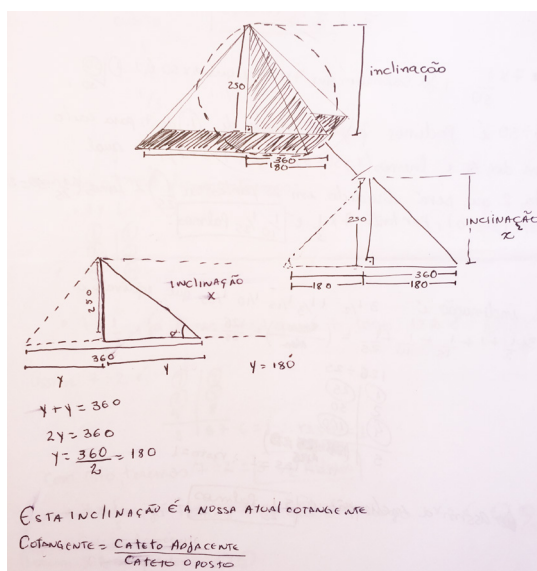 inclinação
250
360
180
250
INCLINAÇÃO
x
180
360
180
INCLINAÇÃO
X
250
360
Y
Y
Y = 180
Y + Y = 360
2Y = 360
Y = 360/2 = 180
ESTA INCLINAÇÃO É A NOSSA ATUAL COTANGENTE
COTANGENTE = CATETO ADJACENTE
CATETO OPOSTO